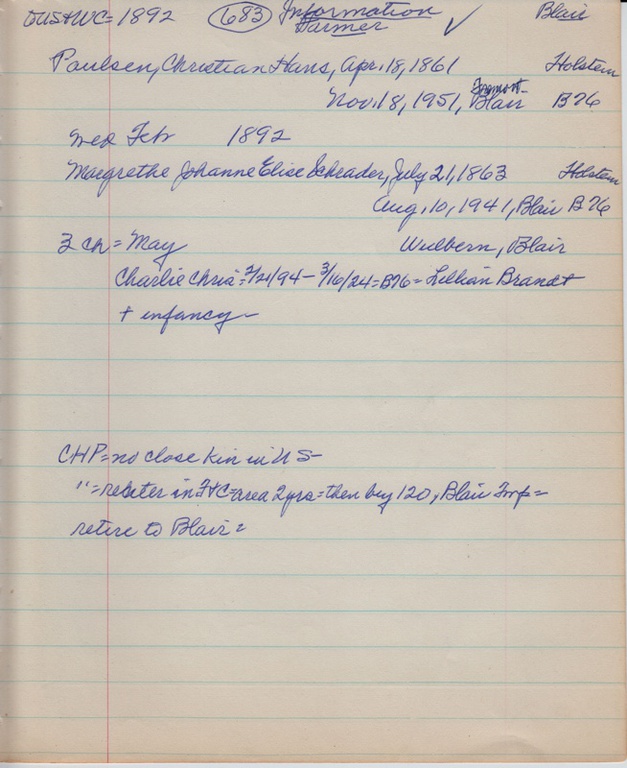 TUS+WC=1892 (683) Information ✓ Blair
Farmer
Paulsen, Christian Hans, Apr. 18, 1861 Holstein
Fremont-
Nov. 18, 1951, Blair B76
Med Feb 1892
Margrethe Johanne Elise Schrader, July 21, 1863 Holstein
Aug. 10, 1941, Blair B76
3 ch = May Wulbern, Blair
Charlie Chris = 7/21/94 - 3/16/24 = B76 = Lillian Brandt
+ infancy -
CHP = no close kin in US -
" = renter in area 2 yrs = then buy 120, Blair Twp =
retire to Blair =